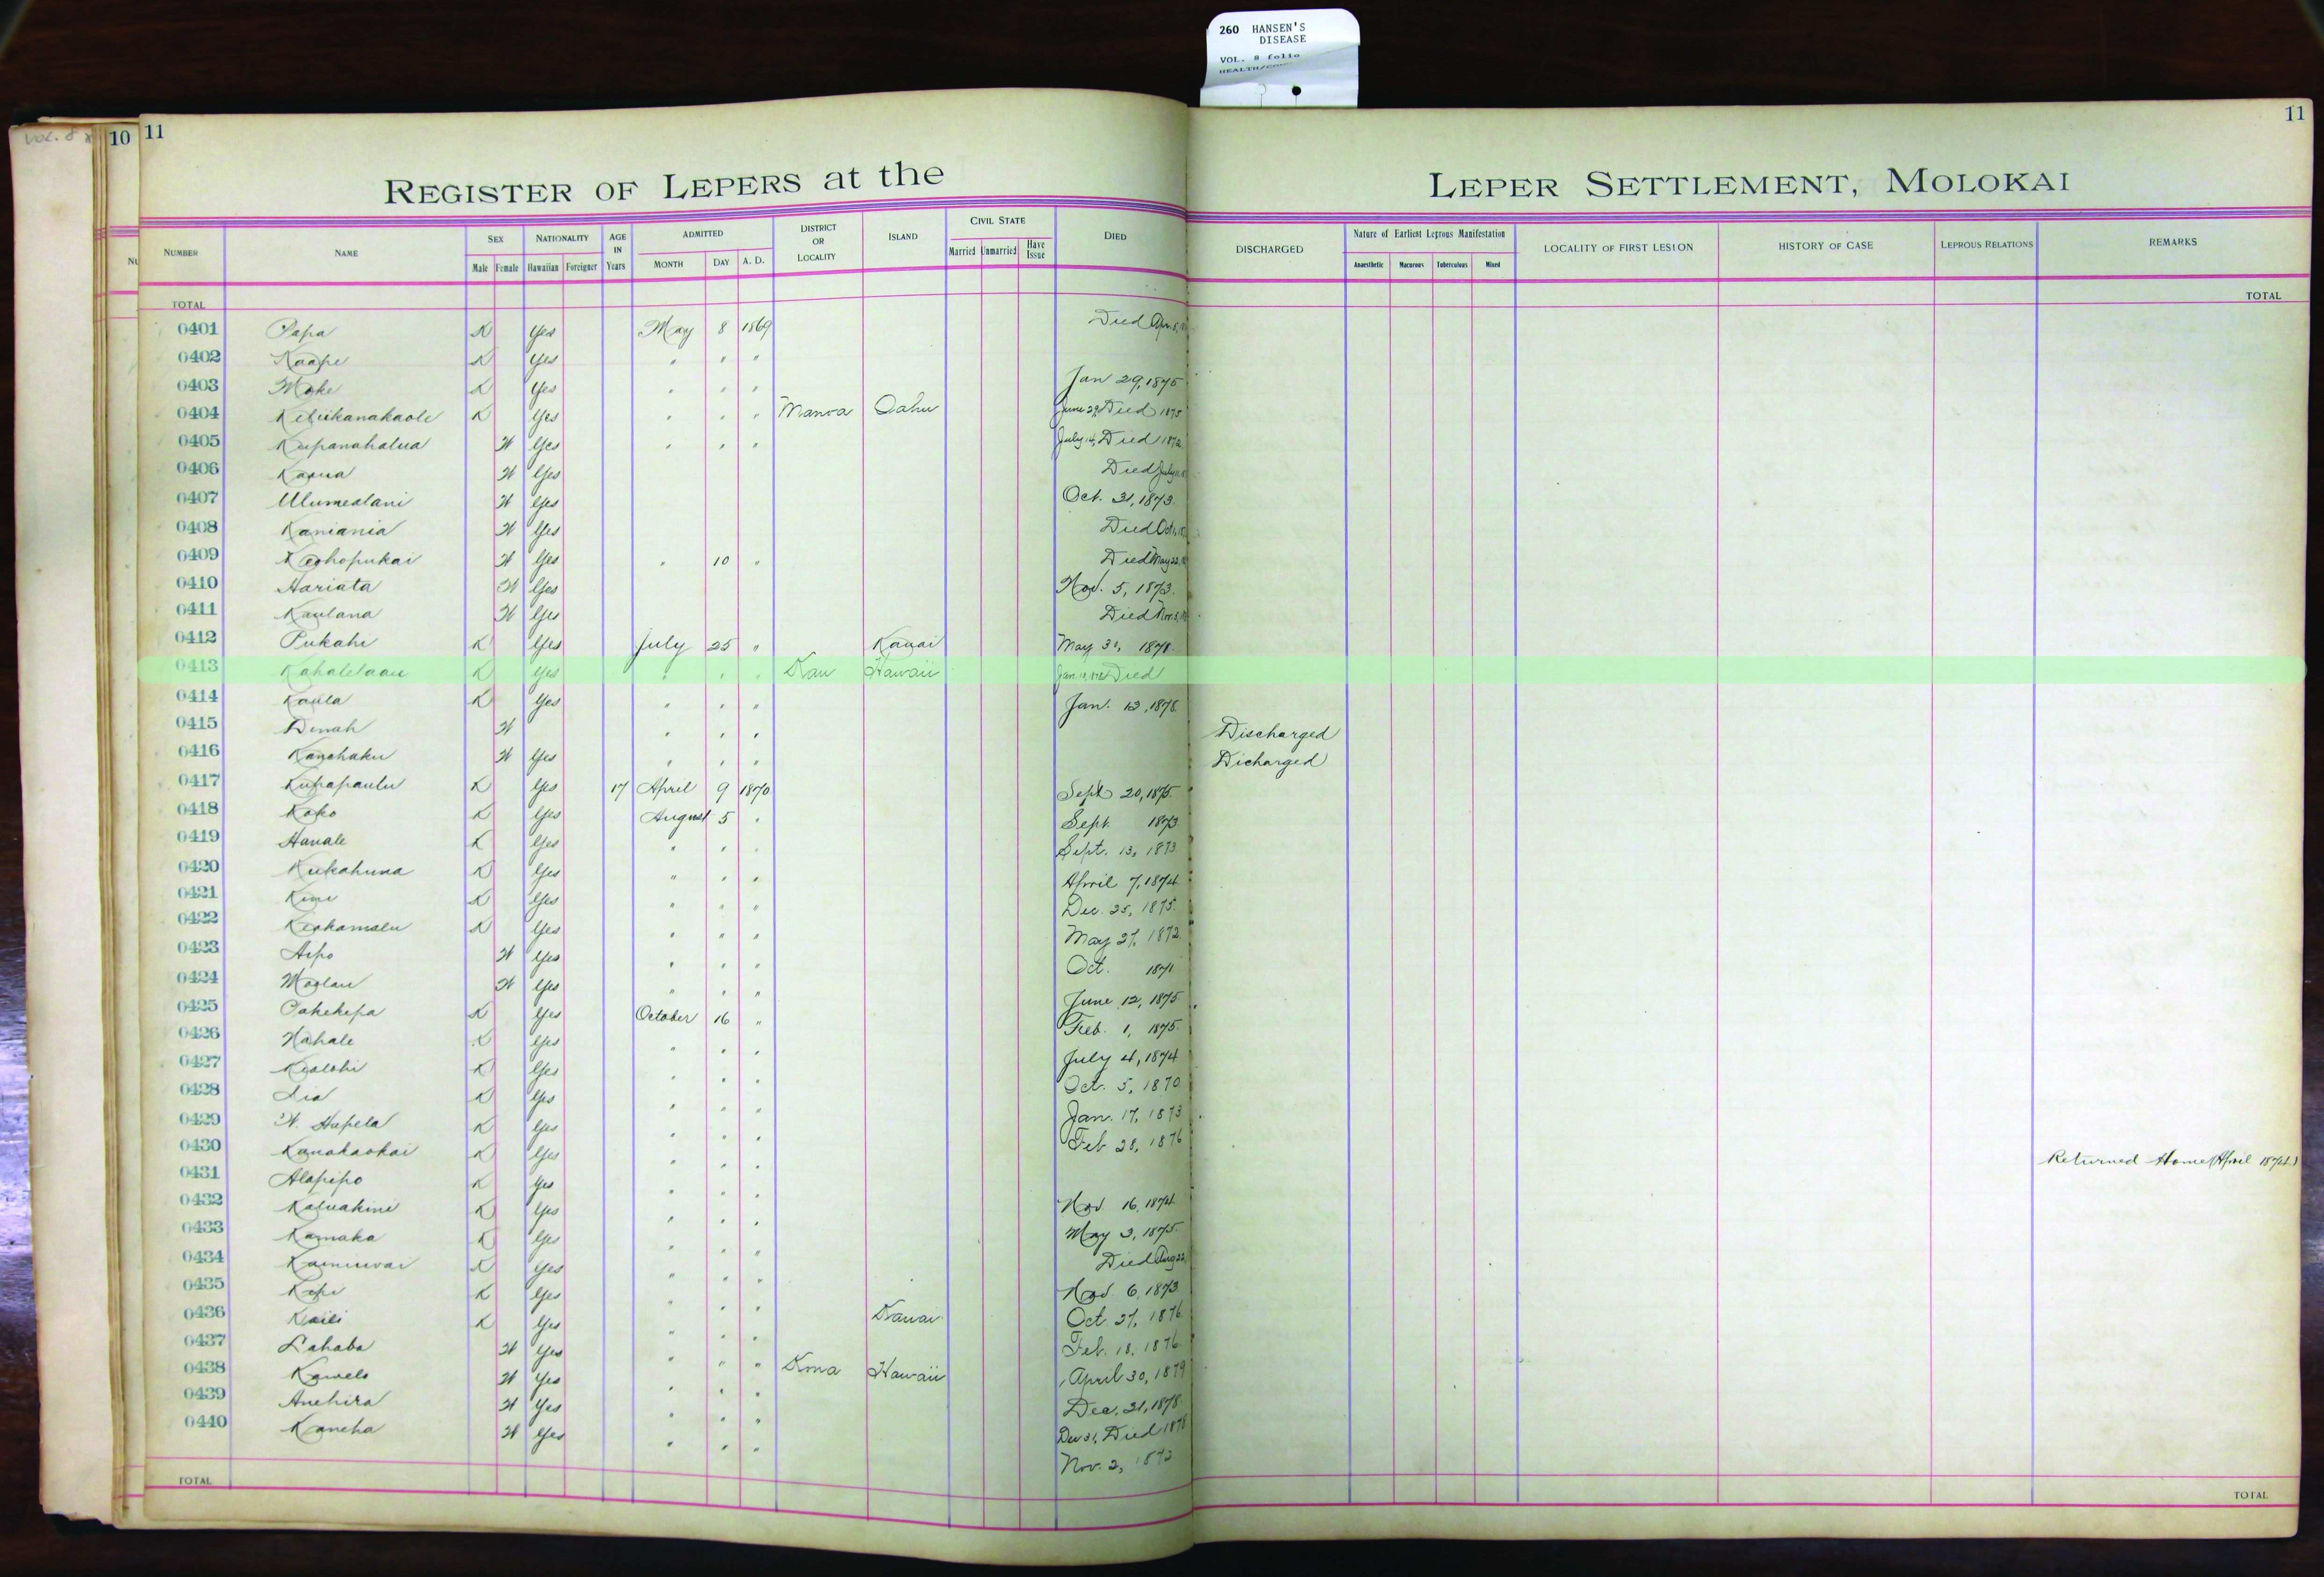 260 HANSEN'S
DISEASE
VOL. 8 folio
VOL. 8
10 11
11
REGISTER OF LEPERS at the LEPER SETTLEMENT, MOLOKAI
NUMBER NAME SEX Male Female NATIONALITY Hawaiian Foreigner AGE IN Years ADMITTED MONTH DAY A. D. DISTRICT OR LOCALITY ISLAND CIVIL STATE Married Unmarried Have Issue DIED DISCHARGED Nature of Earliest Leprous Manifestation Anaesthetic Macurous Tuberculous Mixed LOCALITY OF FIRST LESION HISTORY OF CASE LEPROUS RELATIONS REMARKS
TOTAL TOTAL
0401 Papa K Yes May 8 1869 Died Apr. 8,
0402 Kaape K Yes " " "
0403 Moke K Yes " " " Jan 29, 1875
0404 Keliikanakaole K Yes " " " Manoa Oahu June 29, Died 1875
0405 Kupanahalua W Yes " " " July 14, Died 1872
0406 W Yes Died July
0407 Ulumealani W Yes Oct. 31, 1873
0408 Kaniania W Yes Died Oct.
0409 Keohopukai W Yes " 10 " Died May 22,
0410 Hariata W Yes Nov. 5, 1873
0411 Kaulana W Yes Died Nov. 3,
0412 Pukahi K Yes July 25 " Kauai May 31, 1871
0413 Kahalelaau K Yes " " " Kau Hawaii Jan. Died
0414 Kaula K Yes " " " Jan. 12, 1878
0415 Dinah W " " " Discharged
0416 Kanehaku W Yes " " " Dicharged
0417 Kupapaulu K Yes 17 April 9 1870 Sept 20, 1875
0418 Koko K Yes August 5 " Sept. 1873
0419 Hanale K Yes " " " Sept. 13, 1873
0420 Kukahuna K Yes " " " April 7, 1874
0421 Kini K Yes " " " Dec. 25, 1875
0422 Keakamalu K Yes " " " May 27, 1872
0423 Aipo W Yes " " " Oct. 1871
0424 Moolau W Yes " " " June 12, 1875
0425 Pakekepa K Yes October 16 " Feb. 1, 1875
0426 Nahale K Yes " " " July 4, 1874
0427 Kealohi K Yes " " " Oct. 5, 1870
0428 Lia K Yes " " " Jan. 17, 1873
0429 W. Hapela K Yes " " " Feb 28, 1876
0430 Kanakaokai K Yes " " " Returned Home (April 1874)
0431 Alapipo K Yes " " " Nov 16, 1874
0432 Kaluakini K Yes " " " May 3, 1875
0433 Kamaka K Yes " " " Died Aug 22,
0434 Kainiwai K Yes " " " Nov. 6, 1873
0435 Kepi K Yes " " " Kauai Oct. 27, 1876
0436 Kaili K Yes " " " Feb. 18, 1876
0437 Lahaba W Yes " " " Kona Hawaii April 30, 1879
0438 Kawelo W Yes " " " Dec. 31, 1878
0439 Anehira W Yes " " " Dec 31, Died 1878
0440 Kaneha W Yes " " " Nov. 2, 1872
TOTAL TOTAL